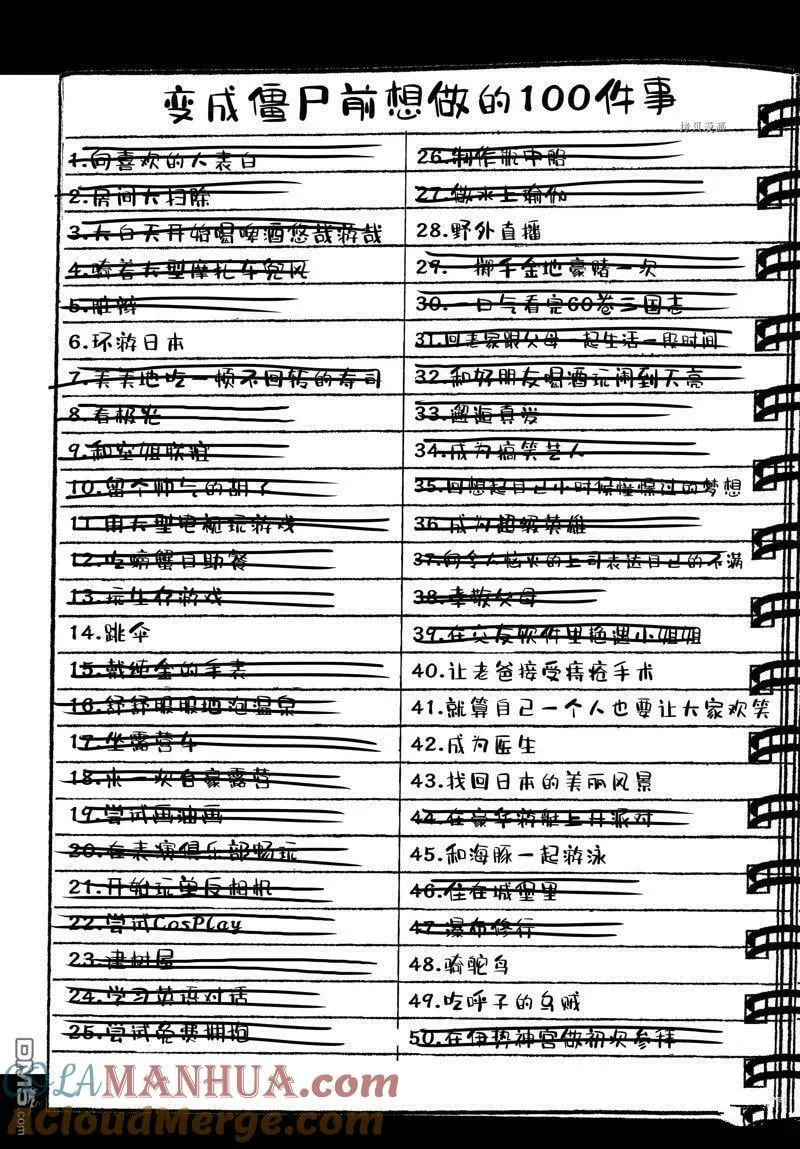 变成僵尸前想做的100件事
拷贝漫画
1.向喜欢的人表白
2.房间大扫除
3.大白天开始喝啤酒悠哉游哉
4.骑着大型摩托车兜风
5.脏辫
6.环游日本
7.美美地吃一顿不回转的寿司
8.看极光
9.和空姐联谊
10.留个帅气的胡子
11.用大型电视玩游戏
12.吃螃蟹自助餐
13.玩生存游戏
14.跳伞
15.戴纯金的手表
16.舒舒服服地泡温泉
17.坐露营车
18.来一次自豪露营
19.尝试画油画
20.在表演俱乐部畅玩
21.开始玩单反相机
22.尝试CosPlay
23.建树屋
24.学习英语对话
25.尝试免费拥抱
26.制作瓶中船
27.做水上瑜伽
28.野外直播
29.一掷千金地豪赌一次
30.一口气看完60卷三国志
31.回老家跟父母一起生活一段时间
32.和好朋友喝酒玩闹到天亮
33.邂逅真爱
34.成为搞笑艺人
35.回想起自己小时候憧憬过的梦想
36.成为超级英雄
37.向令人恼火的上司表达自己的不满
38.孝敬父母
39.在交友软件里艳遇小姐姐
40.让老爸接受痔疮手术
41.就算自己一个人也要让大家欢笑
42.成为医生
43.找回日本的美丽风景
44.在豪华游艇上开派对
45.和海豚一起游泳
46.住在城堡里
47.瀑布修行
48.骑鸵鸟
49.吃呼子的乌贼
50.在伊势神宫做初次参拜
DM5.com
COLAMANHUA.com
ACloudMerge.com